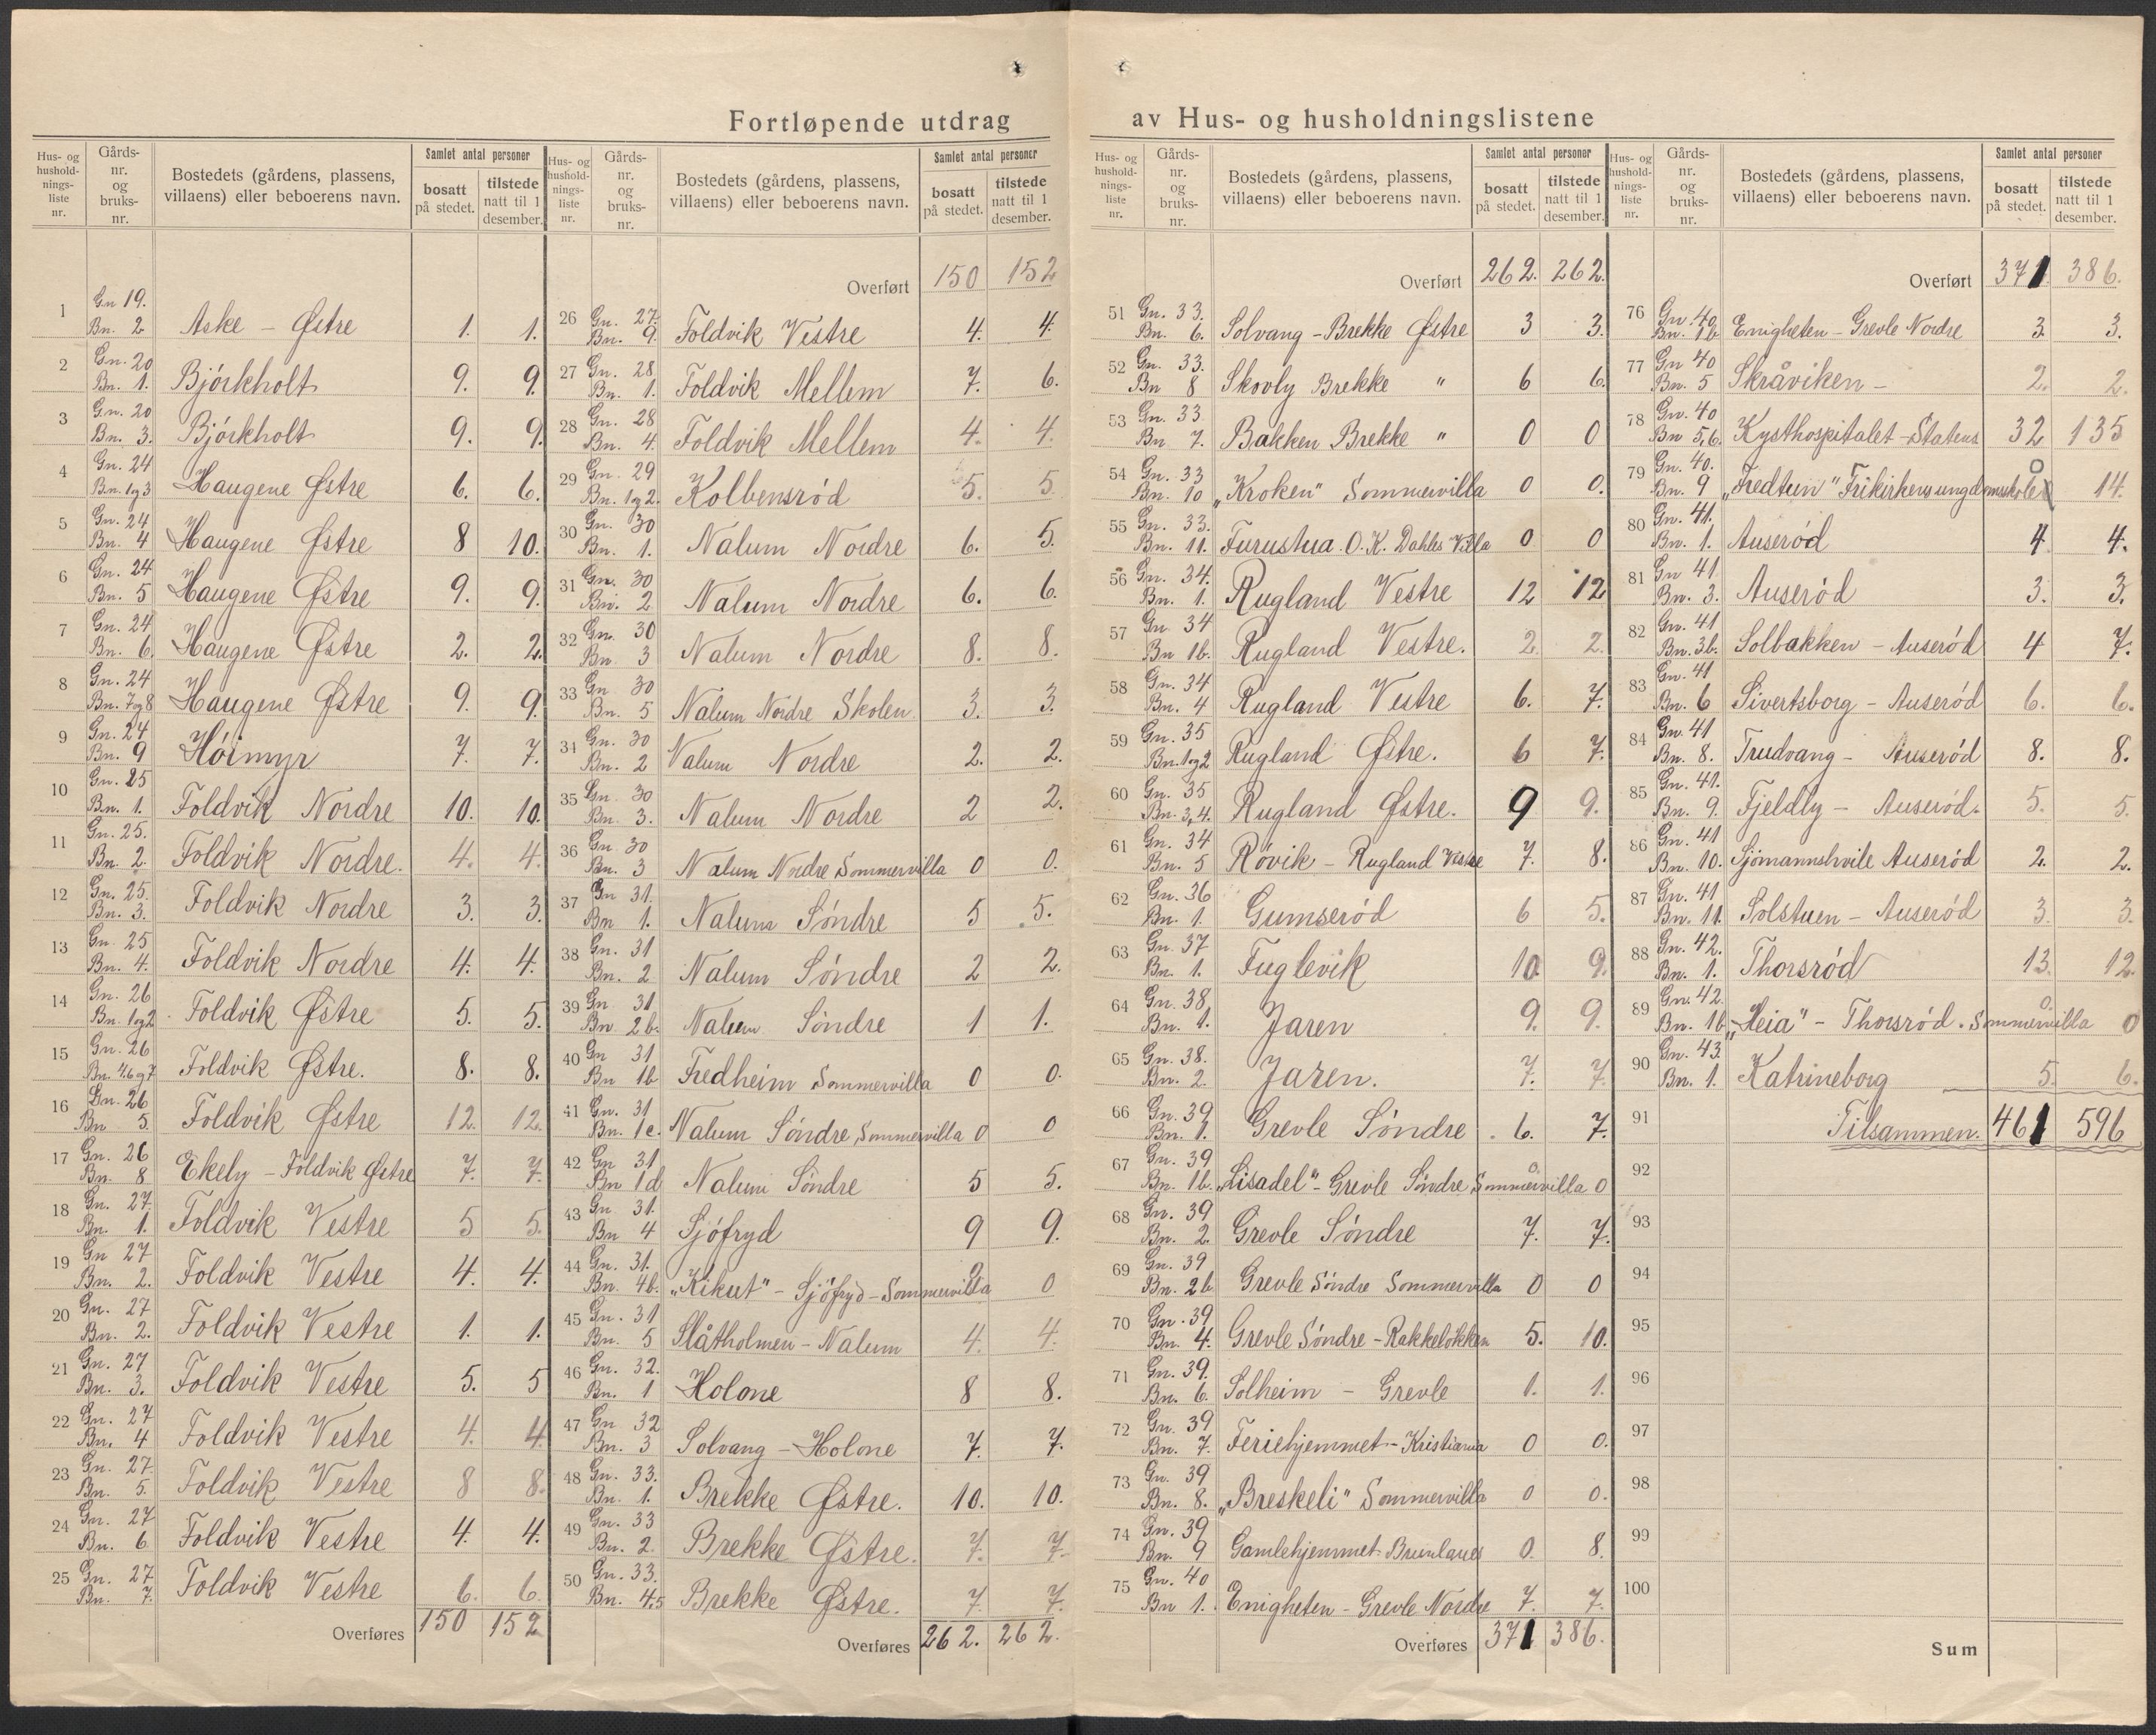 Fortløpende utdrag av Hus- og husholdningslistene
Hus- og husholdnings-liste nr. | Gårds-nr. og bruks-nr. | Bostedets (gårdens, plassens, villaens) eller beboerens navn. | Samlet antal personer | bosatt på stedet. | tilstede natt til 1 desember.
1 Gn 19. Bn. 2 Aske – Østre 1. 1.
2 Gn. 20 Bn. 1. Bjórkholt 9. 9.
3 Gn. 20 Bn. 3. Bjórkholt 9. 9.
4 Gn. 24 Bn. 1og3 Haugene Østre 6. 6.
5 Gn. 24 Bn. 4 Haugene Østre 8 10.
6 Gn. 24 Bn. 5 Haugene Østre 9. 9.
7 Gn. 24 Bn. 6. Haugene Østre 2. 2.
8 Gn. 24 Bn. 7og8 Haugene Østre 9. 9.
9 Gn. 24 Bn. 9 Hóimyr 7. 7.
10 Gn. 25 Bn. 1. Foldvik Nordre 10. 10.
11 Gn. 25. Bn. 2. Foldvik Nordre. 4. 4.
12 Gn. 25. Bn. 3. Foldvik Nordre 3. 3.
13 Gn. 25 Bn. 4. Foldvik Nordre 4. 4.
14 Gn. 26 Bn. 1og2 Foldvik Østre 5. 5.
15 Gn. 26 Bn. 4.6og7 Foldvik Østre. 8. 8.
16 Gn. 26 Bn 5. Foldvik Østre 12. 12.
17 Gn. 26 Bn. 8 Ekely – Foldvik Østre 7. 7.
18 Gn. 27. Bn. 1. Foldvik Vestre 5 5.
19 Gn 27 Bn. 2. Foldvik Vestre 4. 4.
20 Gn. 27 Bn. 2. Foldvik Vestre 1. 1.
21 Gn. 27 Bn. 3. Foldvik Vestre 5. 5
22 Gn. 27 Bn. 4 Foldvik Vestre 4. 4.
23 Gn. 27. Bn. 5. Foldvik Vestre 8 8.
24 Gn. 27 Bn. 6. Foldvik Vestre 4. 4.
25 Gn. 27 Bn. 7. Foldvik Vestre 6. 6.
Overføres 150 152
Hus- og husholdnings-liste nr. | Gårds-nr. og bruks-nr. | Bostedets (gårdens, plassens, villaens) eller beboerens navn. | Samlet antal personer | bosatt på stedet. | tilstede natt til 1 desember.
Overført 150 152
26 Gn. 27. Bn. 9. Foldvik Vestre 4. 4.
27 Gn. 28 Bn. 1. Foldvik Mellem 7. 6.
28 Gn. 28 Bn. 4. Foldvik Mellem 4. 4.
29 Gn. 29 Bn. 1og2. Kolbensród 5. 5
30 Gn. 30 Bn. 1. Nalum Nordre 6. 5.
31 Gn. 30 Bn. 2 Nalum Nordre 6. 6.
32 Gn. 30 Bn. 3 Nalum Nordre 8. 8.
33 Gn 30 Bn. 5 Nalum Nordre Skolen 3. 3.
34 Gn. 30 Bn. 2 Nalum Nordre 2. 2.
35 Gn. 30 Bn. 3. Nalum Nordre 2 2.
36 Gn. 30 Bn. 3 Nalum Nordre Sommervilla 0 0.
37 Gn 31. Bn 1. Nalum Sóndre 5 5.
38 Gn. 31 Bn. 2 Nalum Sóndre 2 2.
39 Gn. 31 Bn 2b. Nalum Sóndre 1 1.
40 Gn 31 Bn 1b Fredheim Sommervilla 0 0.
41 Gn. 31 Bn. 1c. Nalum Sóndre, Sommervilla 0 0
42 Gn 31 Bn 1d Nalum Sóndre 5 5.
43 Gn 31. Bn 4 Sjófryd 9 9.
44 Gn. 31. Bn. 4b. „Kikut" – Sjófryd – Sommervilla 0 0
45 Gn. 31 Bn. 5 Slåtholmen – Nalum 4. 4.
46 Gn. 32. Bn. 1 Holone 8 8.
47 Gn 32 Bn. 3 Solvang – Holone 7. 7.
48 Gn. 33. Bn. 1. Brekke Østre. 10. 10.
49 Gn. 33 Bn. 2. Brekke Østre. 7. 7.
50 Gn. 33. Bn. 4.5 Brekke Østre. 7. 7.
Overføres 262. 262.
Hus- og husholdnings-liste nr. | Gårds-nr. og bruks-nr. | Bostedets (gårdens, plassens, villaens) eller beboerens navn. | Samlet antal personer | bosatt på stedet. | tilstede natt til 1 desember.
Overført 262. 262.
51 Gn. 33. Bn. 6. Solvang – Brekke Østre 3 3.
52 Gn. 33. Bn 8 Skovly Brekke " 6 6.
53 Gn. 33. Bn 7. Bakken Brekke " 0 0
54 Gn. 33 Bn. 10 „Kroken" Sommervilla 0 0.
55 Gn. 33. Bn. 11. Furustua. O. K. Dahles Villa 0 0
56 Gn. 34. Bn. 1. Rugland Vestre 12 12
57 Gn 34 Bn 1b. Rugland Vestre. 2 2.
58 Gn. 34 Bn. 4 Rugland Vestre 6. 7.
59 Gn. 35 Bn. 1og2 Rugland Østre. 6 7.
60 Gn. 35 Bn. 3,4. Rugland Østre. 9 9.
61 Gn. 34 Bn. 5 Róvik – Rugland Vestre 7. 8.
62 Gn. 36 Bn. 1. Gumseród 6 5.
63 Gn. 37 Bn. 1. Fuglevik 10. 9.
64 Gn. 38. Bn. 1. Jaren 9. 9.
65 Gn. 38. Bn. 2. Jaren. 7. 7.
66 Gn. 39 Bn. 1. Grevle Sóndre 6. 7.
67 Gn. 39 Bn. 1b. „Lisadel" – Grevle Sóndre Sommervilla 0. 0
68 Gn. 39 Bn. 2. Grevle Sóndre 7. 7.
69 Gn. 39 Bn. 2b Grevle Sóndre Sommervilla 0 0
70 Gn. 39 Bn. 4. Grevle Sóndre – Rakkelókken 5. 10.
71 Gn. 39. Bn. 6. Solheim – Grevle 1. 1.
72 Gn. 39 Bn. 7. Feriehjemmet – Kristiania 0 0.
73 Gn. 39 Bn. 8. „Breskeli" Sommervilla 0 0.
74 Gn. 39 Bn. 9 Gamlehjemmet Brunlanes 0. 8.
75 Gn. 40 Bn 1. Enigheten – Grevle Nordre 7. 7.
Overføres 371 386.
Hus- og husholdnings-liste nr. | Gårds-nr. og bruks-nr. | Bostedets (gårdens, plassens, villaens) eller beboerens navn. | Samlet antal personer | bosatt på stedet. | tilstede natt til 1 desember.
Overført 371. 386.
76 Gn. 40 Bn. 1b Enigheten – Grevle Nordre 3 3.
77 Gn 40 Bn. 5 Skråviken – 2. 2.
78 Gn. 40 Bn 5,6. Kysthospitalet – Statens 32 135
79 Gn. 40. Bn. 9 „Fredtun" Frikirkens ungdomsskole 0 14.
80 Gn. 41. Bn. 1. Auseród 4 4.
81 Gn 41 Bn. 3. Auseród 3. 3.
82 Gn. 41 Bn. 3b. Solbakken – Auseród 4 7.
83 Gn. 41 Bn. 6 Sivertsborg – Auseród 6. 6.
84 Gn. 41 Bn. 8. Trudvang – Auseród 8. 8.
85 Gn. 41. Bn. 9. Fjeldly – Auseród. 5. 5
86 Gn. 41 Bn. 10. Sjómannshvile Auseród 2. 2.
87 Gn. 41 Bn. 11. Solstuen – Auseród 3. 3.
88 Gn. 42. Bn. 1. Thorsród 13. 12.
89 Gn. 42. Bn. 1b „Heia" – Thorsród. Sommervilla 0. 0
90 Gn. 43. Bn. 1. Katrineborg 5. 6.
91 Tilsammen. 461 596
92
93
94
95
96
97
98
99
100
Sum